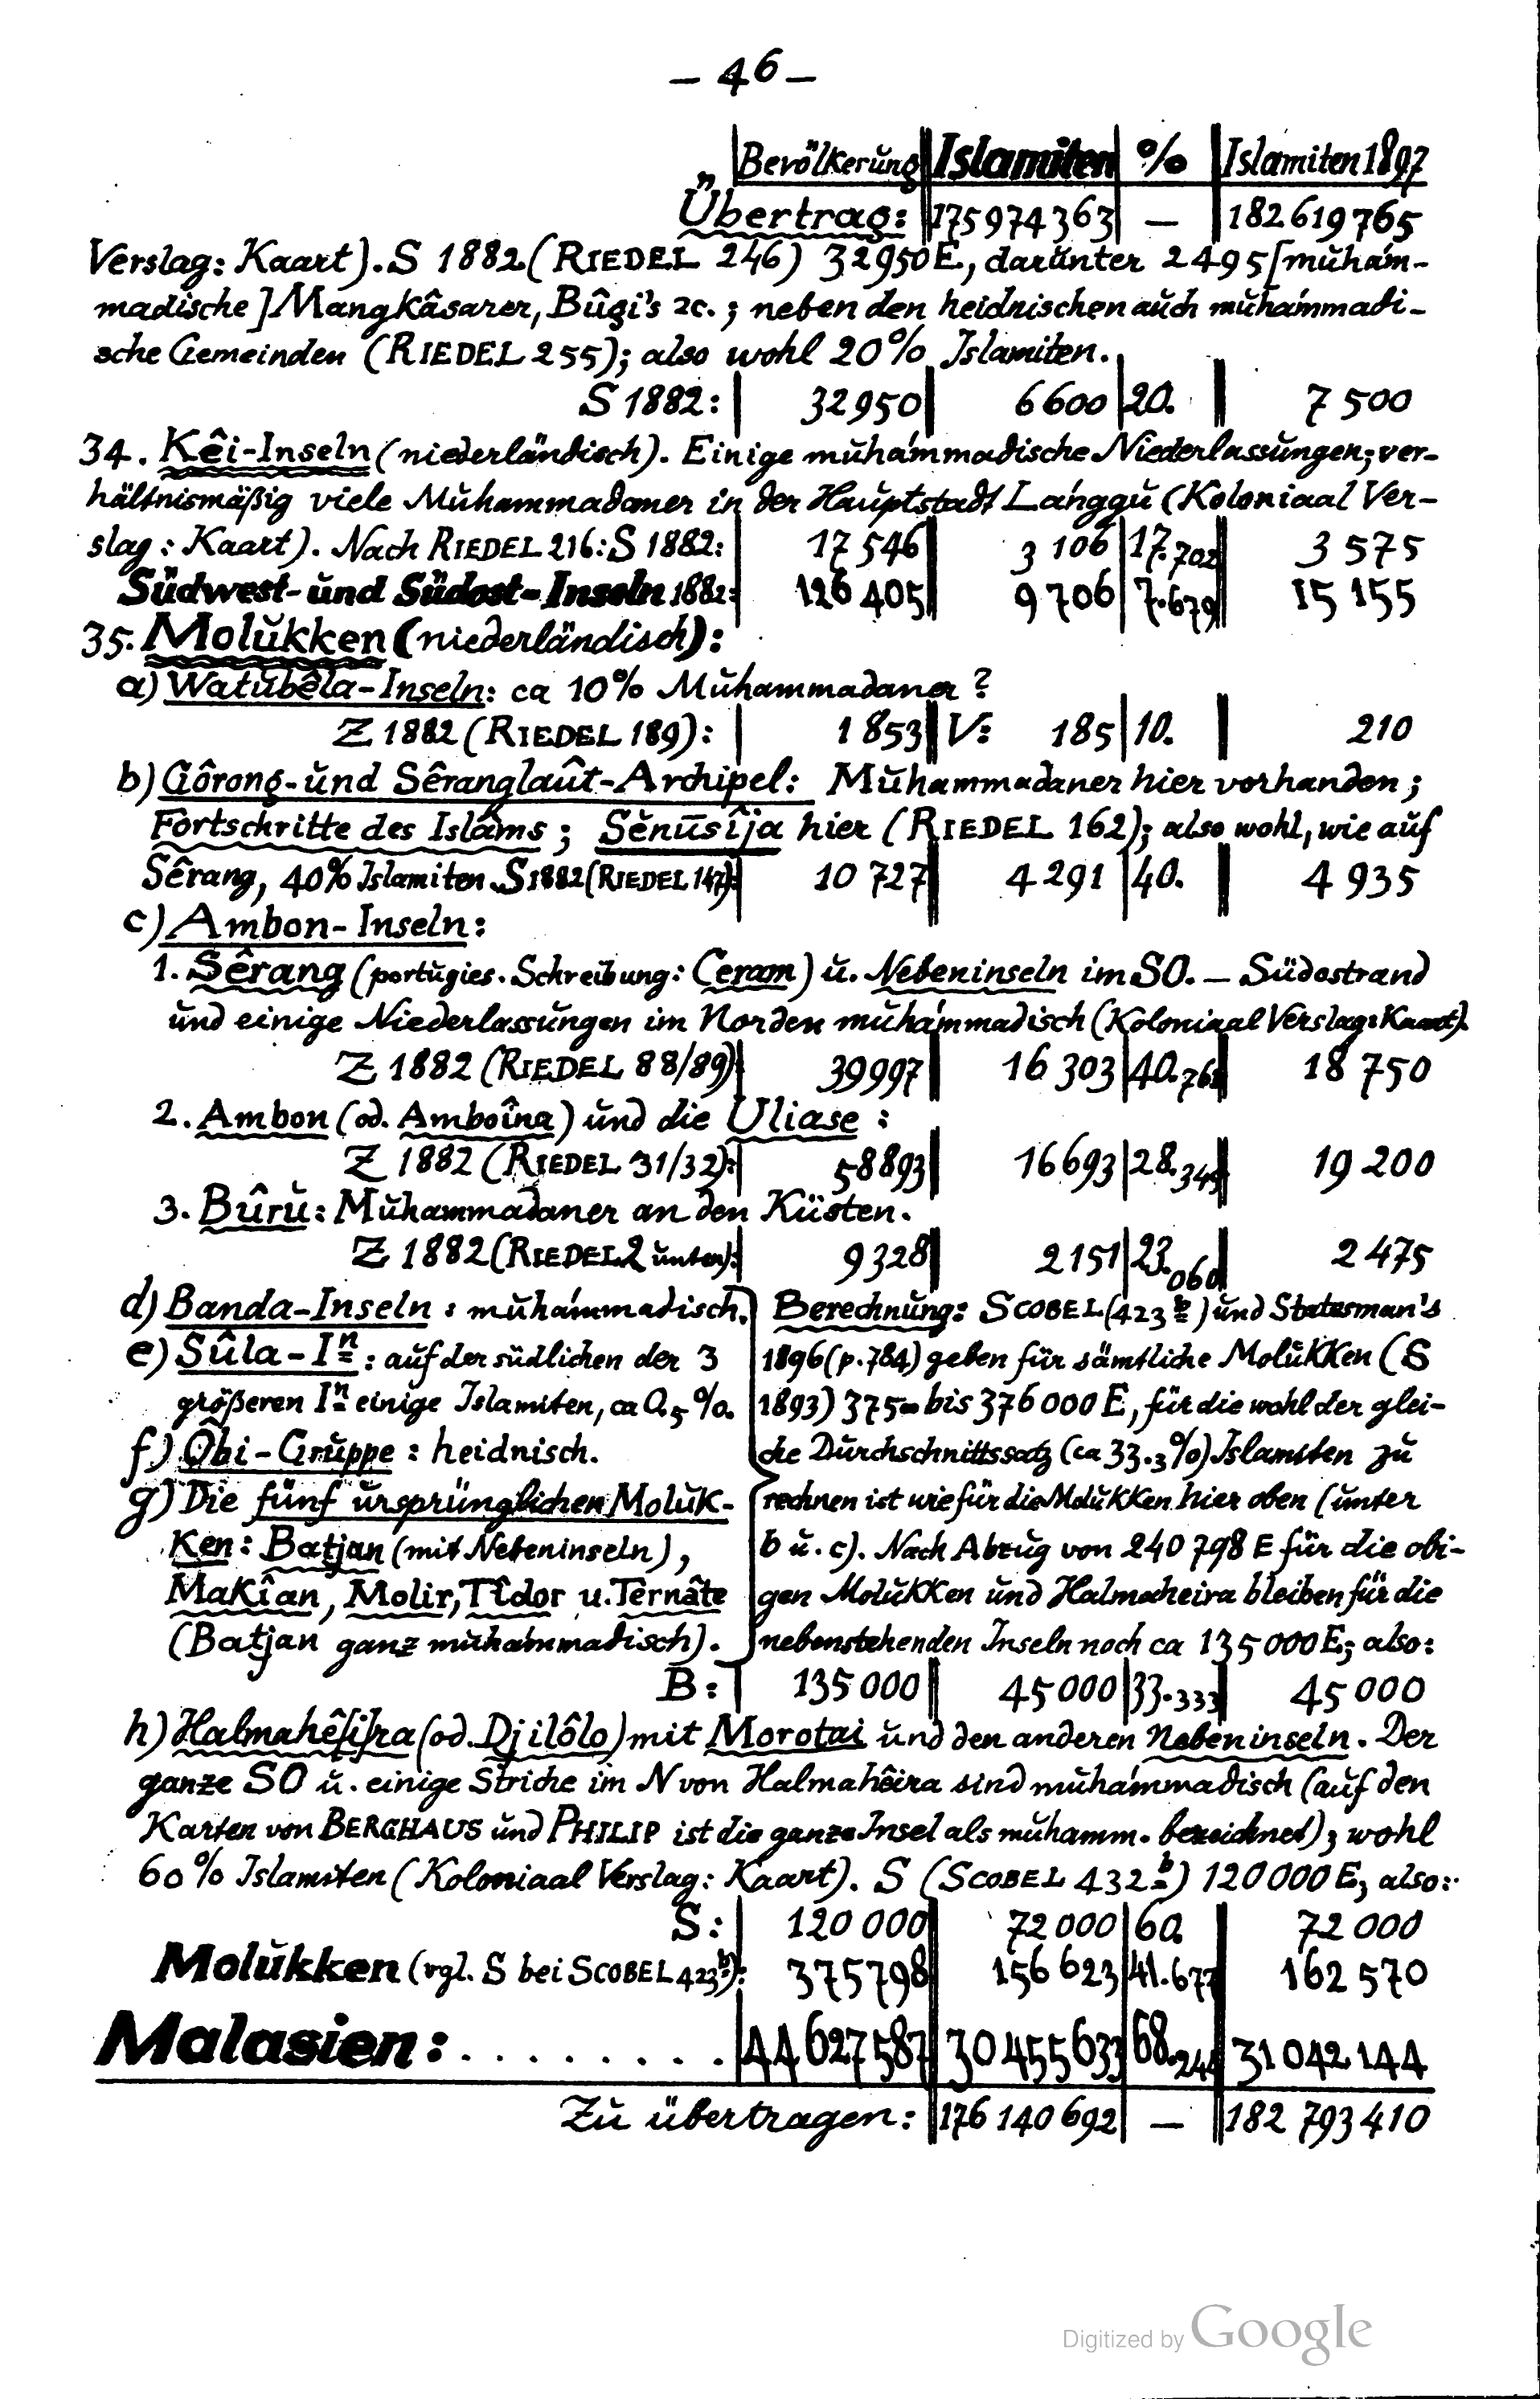 – 46 –
Bevölkerung Islamiten % Islamiten 1897
Übertrag: 175 974 363 — 182 619 765
Verslag: Kaart). S 1882 (RIEDEL 246) 32950 E., darunter 2495 [muham-
madische] Mangkâsarer, Bûgi's 2c.; neben den heidnischen auch muhammadi-
sche Gemeinden (RIEDEL 255); also wohl 20% Islamiten.
S 1882: 32950 6600 20. 7 500
34. Kêi-Inseln (niederländisch). Einige muhammadische Niederlassungen; ver-
hältnismäßig viele Muhammadaner in der Hauptstadt Langgu (Koloniaal Ver-
slag: Kaart). Nach RIEDEL 216: S 1882: 17 546 3 106 17.702 3 575
Südwest- und Südost-Inseln 1882: 126 405 9 706 7.679 15 155
35. Molukken (niederländisch):
a) Watubêla-Inseln: ca 10% Muhammadaner?
Z 1882 (RIEDEL 189): 1 853 V: 185 10. 210
b) Gôrong- und Sêranglaût-Archipel: Muhammadaner hier vorhanden;
Fortschritte des Islâms; Senūsîja hier (RIEDEL 162); also wohl, wie auf
Sêrang, 40% Islamiten. S 1882 (RIEDEL 147): 10 727 4 291 40. 4 935
c) Ambon-Inseln:
1. Sêrang (portugies. Schreibung: Ceram) u. Nebeninseln im SO. – Südostrand
und einige Niederlassungen im Norden muhammadisch (Koloniaal Verslag: Kaart).
Z 1882 (RIEDEL 88/89) 39997 16 303 40.761 18 750
2. Ambon (od. Amboîna) und die Uliase:
Z 1882 (RIEDEL 31/32): 58893 16693 28.345 19 200
3. Bûru: Muhammadaner an den Küsten.
Z 1882 (RIEDEL 2 unten): 9328 2151 23.060 2 475
d) Banda-Inseln: muhammadisch.
e) Sûla-In: auf der südlichen der 3
größeren In einige Islamiten, ca 0.5%.
f) Ôbi-Gruppe: heidnisch.
g) Die fünf ursprünglichen Moluk-
ken: Batjan (mit Nebeninseln),
Makîan, Molir, Tîdor u. Ternâte
(Batjan ganz muhammadisch).
Berechnung: SCOBEL (423 b) und Statesman's
1896 (p. 784) geben für sämtliche Molukken (S
1893) 375- bis 376 000 E, für die wohl der glei-
che Durchschnittssatz (ca 33.3%) Islamiten zu
rechnen ist wie für die Molukken hier oben (unter
b u. c). Nach Abzug von 240 798 E für die obi-
gen Molukken und Halmaheira bleiben für die
nebenstehenden Inseln noch ca 135 000 E; also:
B: 135 000 45 000 33.333 45 000
h) Halmahê[i]ra (od. Djilôlo) mit Morotai und den anderen Nebeninseln. Der
ganze SO u. einige Striche im N von Halmahêira sind muhammadisch (auf den
Karten von BERGHAUS und PHILIP ist die ganze Insel als muhamm. bezeichnet); wohl
60% Islamiten (Koloniaal Verslag: Kaart). S (SCOBEL 432 b) 120 000 E, also:
S: 120 000 72 000 60. 72 000
Molukken (vgl. S bei SCOBEL 423 b): 375798 156 623 41.677 162 570
Malasien: . . . . . . . . . 44 627 587 30 455 633 68.244 31 042 144
Zu übertragen: 176 140 692 — 182 793 410
Digitized by Google